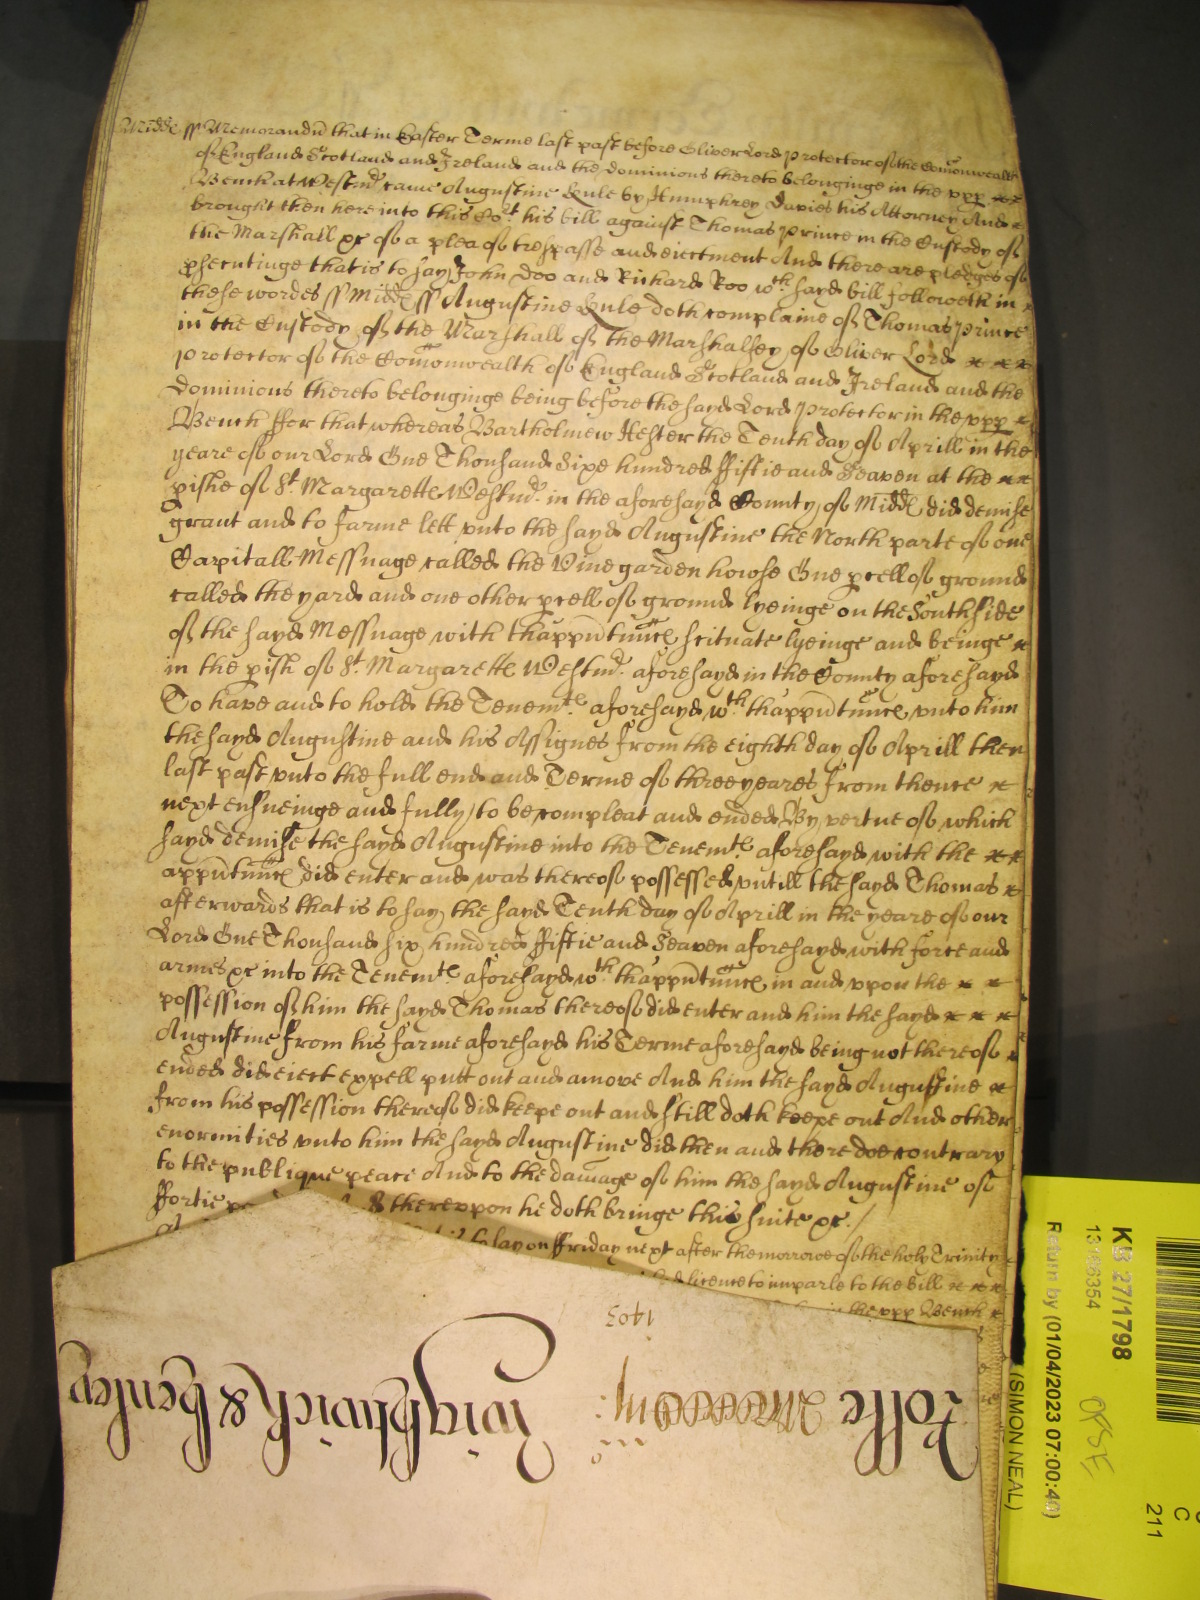 Midd ss Memorandu that in Easter Terme last past before Oliver Lord Protector of the Comonwealth
of England Scotland and Ireland and the dominions thereto belonginge in the vpp
Bench at Westmr came Augustine Rule by Humphrey Davies his Attorney And
brought then here into this Cort his bill against Thomas Prince in the Custody of
the Marshall &c of a plea of trespasse and eiectment And there are pledges of
psecutinge that is to say John Doo and Richard Roo wch sayd bill followeth in
these wordes ss Midd ss Augustine Rule doth complaine of Thomas Prince
in the Custody of the Marshall of the Marshalsey of Oliver Lord
Protector of the Comonwealth of England Scotland and Ireland and the
dominions thereto belonginge being before the sayd Lord Protector in the vpp
Bench ffor that whereas Bartholmew Hester the Tenth day of Aprill in the
yeare of our Lord One Thousand Sixe hundred ffiftie and Seaven at the
pishe of St Margarette Westmr in the aforesayd County of Midd did demise
grant and to farme lett vnto the sayd Augustine the North parte of one
Capitall Messuage called the Vine garden howse One pcell of ground
called the yard and one other pcell of ground lyeinge on the South side
of the sayd Messuage with thappurtunces scituate lyeinge and beinge
in the pish of St Margarette Westmr aforesayd in the County aforesayd
To have and to hold the Tenemts aforesayd wth thappurtunces vnto him
the sayd Augustine and his Assignes from the eighth day of Aprill then
last past vnto the full end and Terme of three yeares from thence
next ensueinge and fully to be compleat and ended By vertue of which
sayd demise the sayd Augustine into the Tenemts aforesayd with the
appurtunces did enter and was thereof possessed vntill the sayd Thomas
afterwards that is to say the sayd Tenth day of Aprill in the yeare of our
Lord One Thousand six hundred ffiftie and Seaven aforesayd with force and
armes &c into the Tenemts aforesayd wth thappurtunces in and vpon the
possession of him the sayd Thomas thereof did enter and him the sayd
Augustine from his farme aforesayd his Terme aforesayd being not thereof
ended did eiect expell putt out and amove And him the sayd Augustine
from his possession thereof did keepe out and still doth keepe out And other
enormities vnto him the sayd Augustine did then and there doe contrary
to the publique peace And to the damage of him the sayd Augustine of
ffortie & therevpon he doth bringe this suite &c.
to say on ffriday next after the morrow of the holy Trinity
licence to imparle to the bill
the vpp Bench
1403
Rolle
Wightwick & Henley
KB 27/1798
13166354
Return by (01/04/2023 07:00:40)
(SIMON NEAL)
C
211